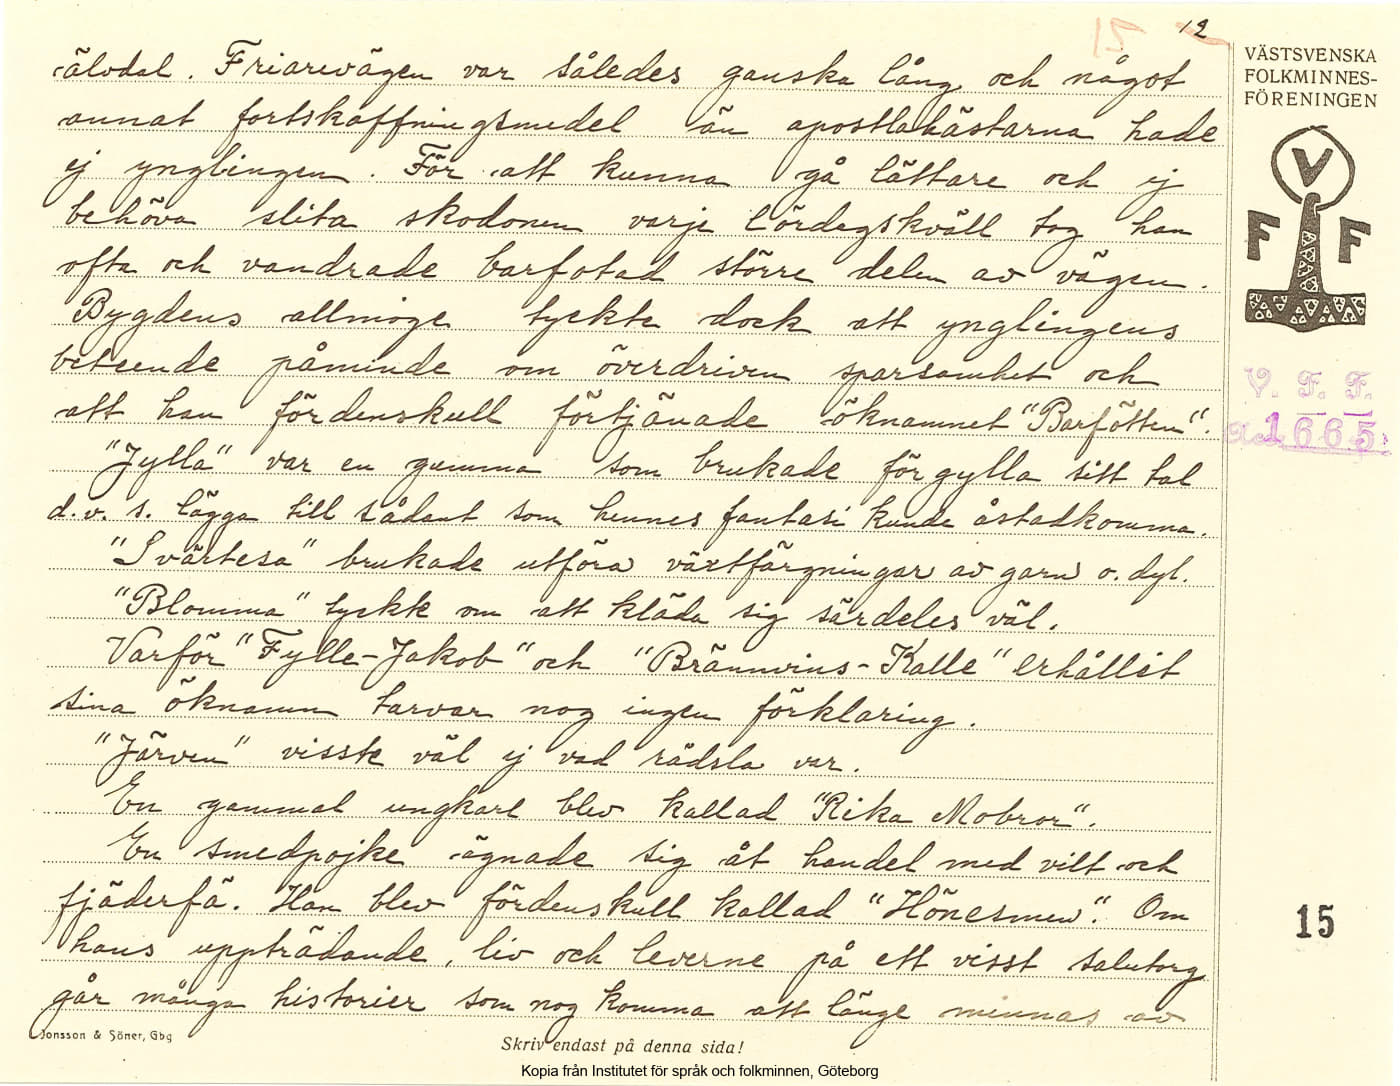 12
15
älvdal. Friarevägen var således ganska lång och något
annat fortskaffningsmedel än apostlahästarna hade
ej ynglingen. För att kunna gå lättare och ej
behöva slita skodonen varje lördagskväll tog han
ofta och vandrade barfotad större delen av vägen.
Bygdens allmoge tyckte dock att ynglingens
beteende påminde om överdriven sparsamhet och
att han fördenskull förtjänade öknamnet "Barfötten".
"Jylla" var en gumma som brukade förgylla sitt tal
d.v.s. lägga till sådant som hennes fantasi kunde åstadkomma.
"Svärtesa" brukade utföra växtfärgningar av garn o. dyl.
"Blomma" tyckte om att kläda sig särdeles väl.
Varför "Fylle-Jakob" och "Brännvins-Kalle" erhållit
sina öknamn tarvar nog ingen förklaring.
"Järven" visste väl ej vad rädsla var.
En gammal ungkarl blev kallad "Rika Mobror".
En smedpojke ägnade sig åt handel med vilt och
fjäderfä. Han blev fördenskull kallad "Hönesmen". Om
hans uppträdande, liv och leverne på ett visst salutorg
går många historier som nog komma att länge minnas av
Jonsson & Söner, Gbg
Skriv endast på denna sida!
VÄSTSVENSKA
FOLKMINNES-
FÖRENINGEN
V
F F
V. F. F.
1665
15
Kopia från Institutet för språk och folkminnen, Göteborg